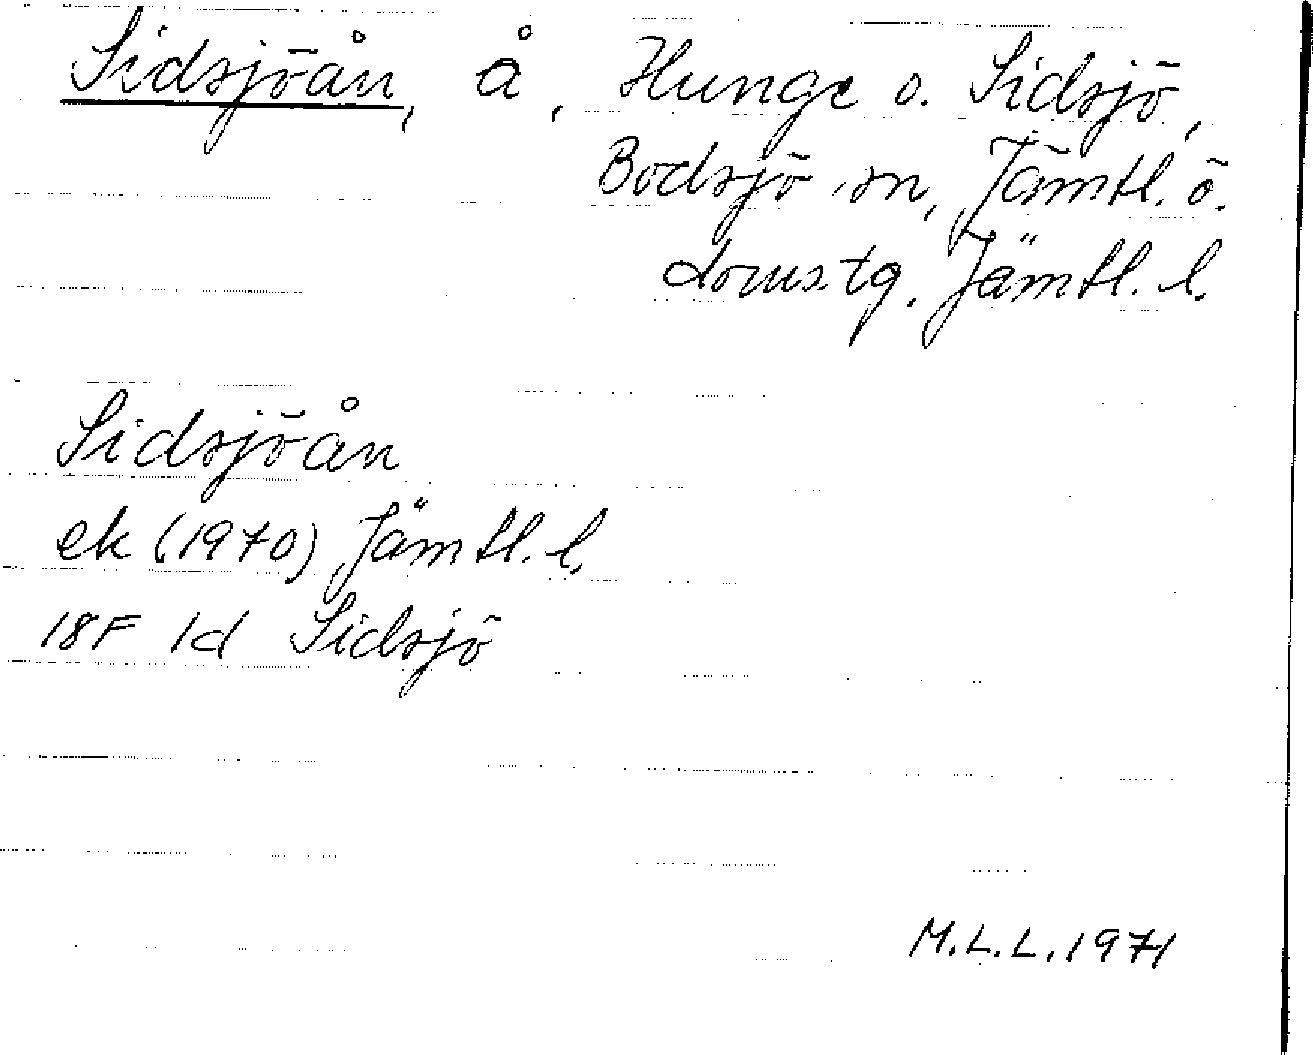 Sidsjöån, å, Hunge o. Sidsjö,
Bodsjö sn, Jämtl. ö.
domstg. Jämtl. l.
Sidsjöån
ek (1970) Jämtl. l.
18F 1d Sidsjö
M.L.L. 1971